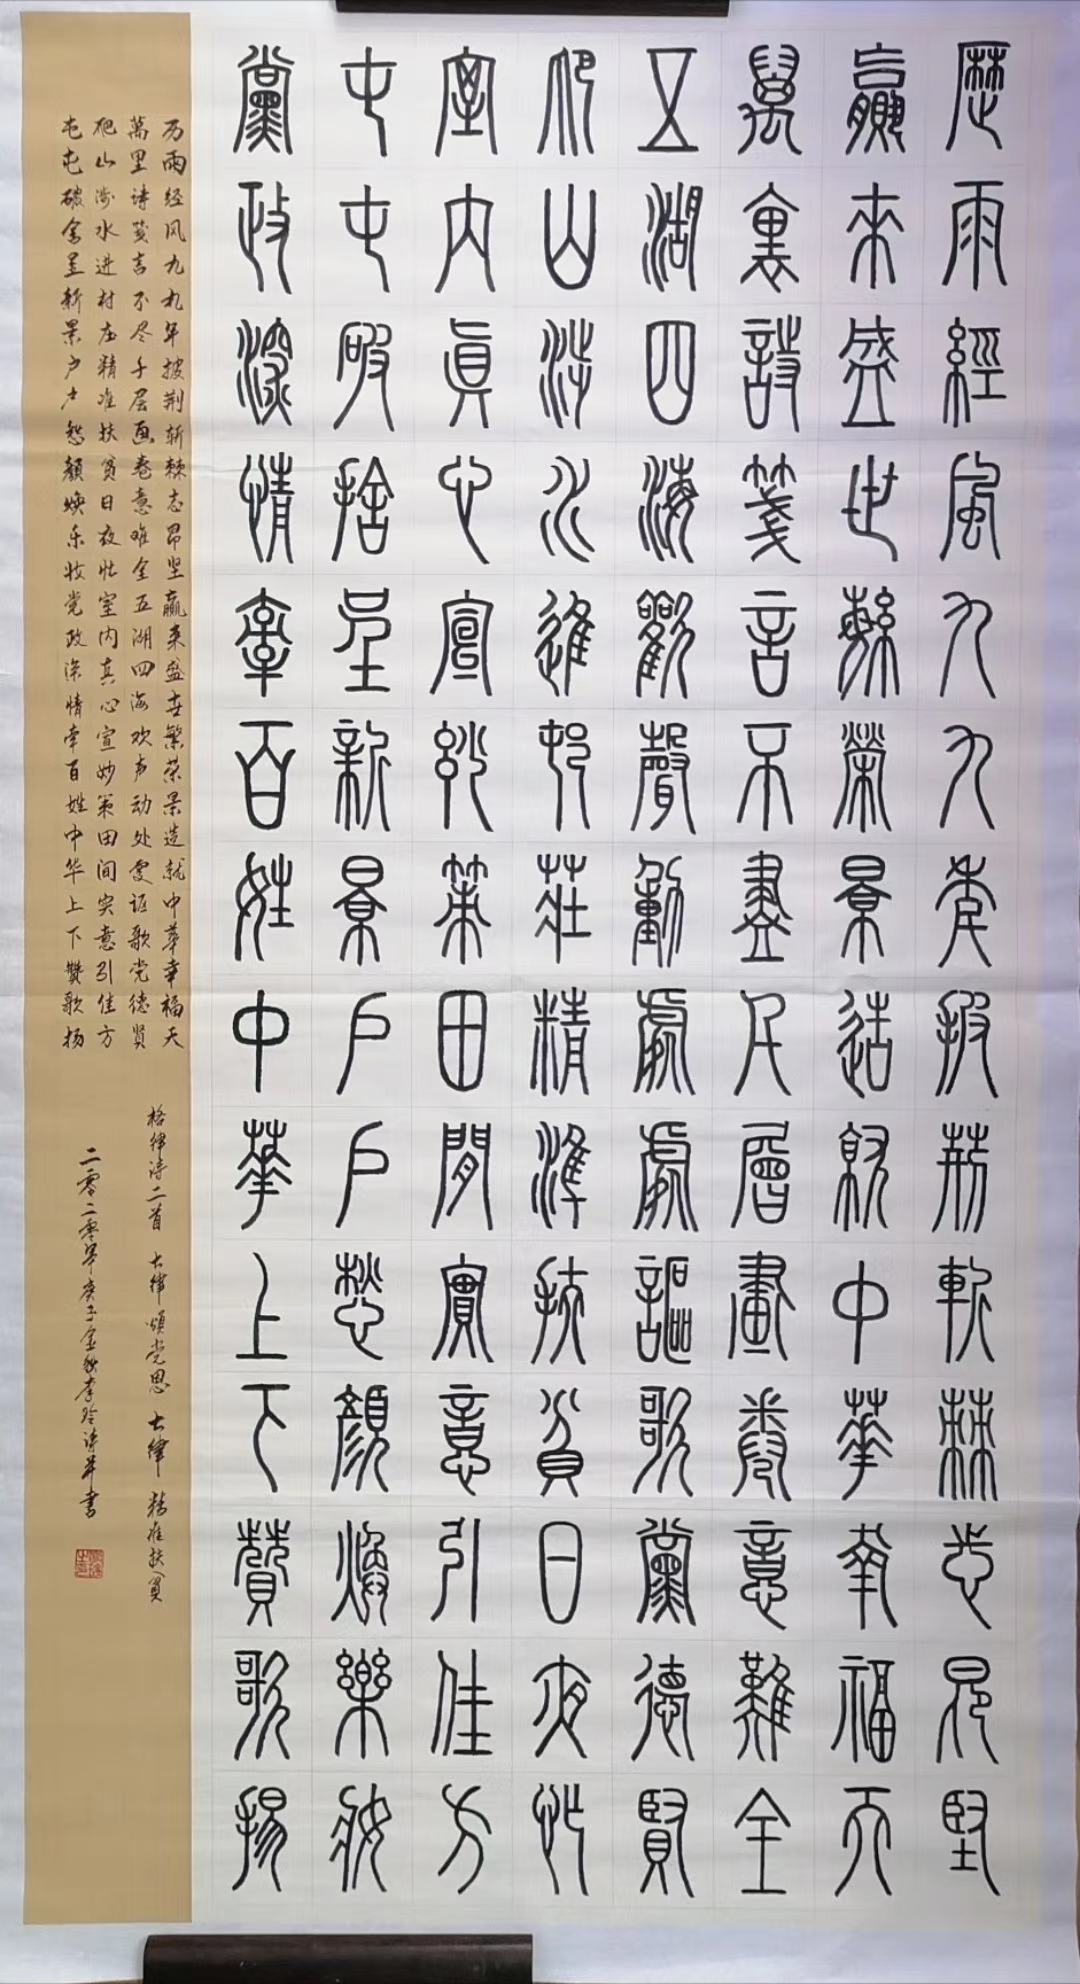 歷雨經風九九年披荊斬棘志昂堅
贏來盛世繁榮景造就中華幸福天
萬裏詩箋言不盡千層畫卷意難全
五湖四海歡聲動處處謳歌黨德賢
爬山涉水進村莊精準扶貧日夜忙
室內真心宣妙策田間實意引佳方
屯屯破舍呈新景戶戶愁顏煥樂妝
黨政深情牽百姓中華上下贊歌揚
历雨经风九九年披荆斩棘志昂坚赢来盛世繁荣景造就中华幸福天
萬里诗笺言不尽千层画卷意难全五湖四海欢声动处处讴歌党德贤
爬山涉水进村庄精准扶贫日夜忙室内真心宣妙策田间实意引佳方
屯屯破舍呈新景户户愁颜焕乐妆党政深情牵百姓中华上下赞歌扬
格律诗二首 七律颂党恩 七律 精准扶贫
二零二零年庚子金秋李玲诗并书